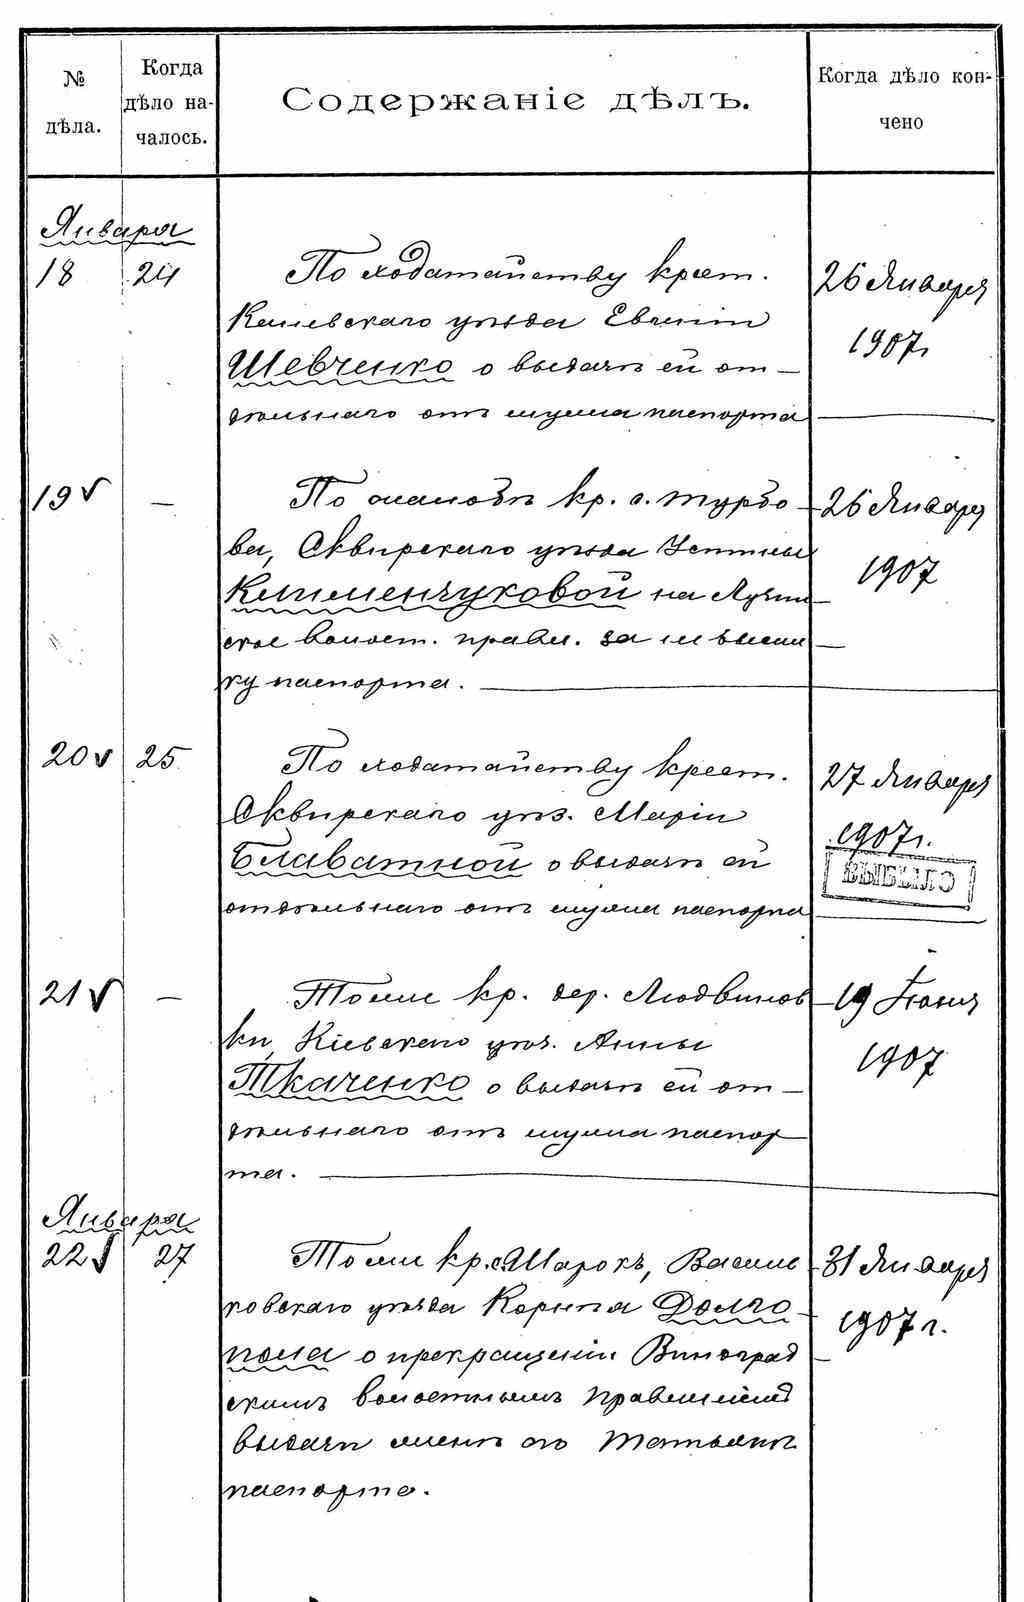 № дѣла.
Когда дѣло началось.
Содержаніе дѣлъ.
Когда дѣло кончено
Января
18 24 По ходатайству крест. 26 Января
Каневскаго уѣзда Евгеніи 1907г
Шевченко о выдачѣ ей от
дѣльнаго отъ мужа паспорта
19 — По жалобѣ кр. с. Турбо 26 Января
ва, Сквирскаго уѣзда Устиньи 1907
Клименчуковой на
ское волост. правл. за невысыл
ку паспорта.
20 25 По ходатайству крест. 27 Января
Сквирскаго уѣз. Маріи 1907г.
Блаватной о выдачѣ ей ВЫБЫЛО
отдѣльнаго отъ мужа паспорта
21 — Тоже кр. дер. Людвинов 19 Іюня
ки, Кіевскаго уѣз. Анны 1907
Ткаченко о выдачѣ ей от
дѣльнаго отъ мужа паспор
та.
Января
22 27 Тоже кр. с. Василь 31 Января
ковскаго уѣзда Корнія Долго 1907 г.
пола о прекращеніи Виноград
скимъ волостнымъ правленіемъ
выдачи женѣ его Татьянѣ
паспорта.